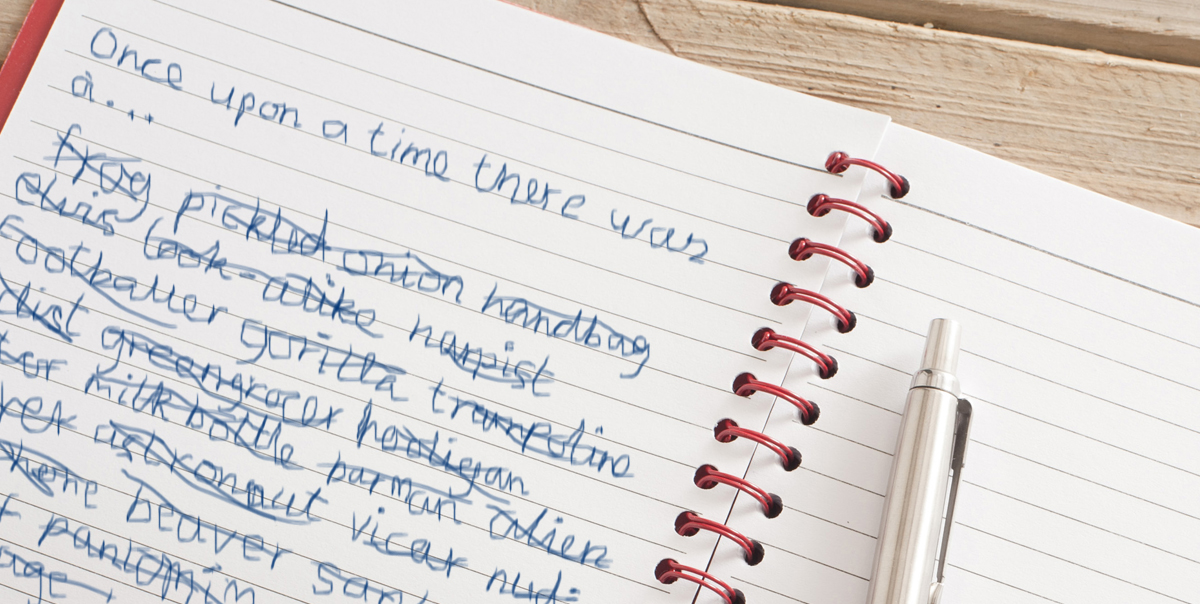 Once upon a time there was
a....
frog pickled onion handbag
elvis look-alike harpist
footballer gorilla trampoline
list greengrocer hooligan
milk bottle barman alien
astronaut vicar
beaver